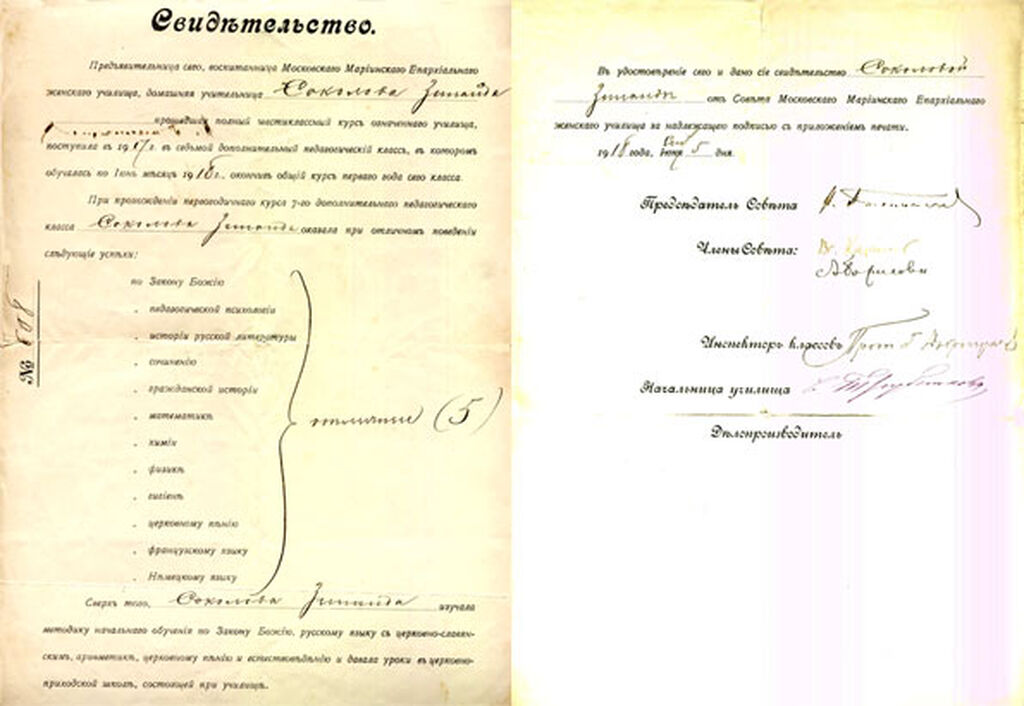 Свидѣтельство.
Предъявительница сего, воспитанница Московскаго Маріинскаго Епархіальнаго
женскаго училища, домашняя учительница Соколова Зинаида
прошедшая полный шестиклассный курсъ означеннаго училища,
поступила въ 1917 г. въ седьмой дополнительный педагогическій классъ, въ которомъ
обучалась по Іюнь мѣсяцъ 1918 г., окончивъ общій курсъ перваго года сего класса.
При прохожденіи первогодичнаго курса 7-го дополнительнаго педагогическаго
класса Соколова Зинаида оказала при отличномъ поведеніи
слѣдующіе успѣхи:
по Закону Божію
„ педагогической психологіи
„ исторіи русской литературы
„ сочиненію
„ гражданской исторіи
„ математикѣ
„ химіи
„ физикѣ
„ гигіенѣ
„ церковному пѣнію
„ французскому языку
„ Нѣмецкому языку
отличные (5)
Сверхъ того, Соколова Зинаида изучала
методику начальнаго обученія по Закону Божію, русскому языку съ церковно-славян-
скимъ, ариѳметикѣ, церковному пѣнію и естествовѣдѣнію и давала уроки въ церковно-
приходской школѣ, состоящей при училищѣ.
№ 608
Въ удостовѣреніе сего и дано сіе свидѣтельство Соколовой
Зинаидѣ отъ Совѣта Московскаго Маріинскаго Епархіальнаго
женскаго училища за надлежащею подписью съ приложеніемъ печати.
1918 года, Іюня 5 дня.
Предсѣдатель Совѣта
Члены Совѣта:
Инспекторъ классовъ Прот.
Начальница училища
Дѣлопроизводитель